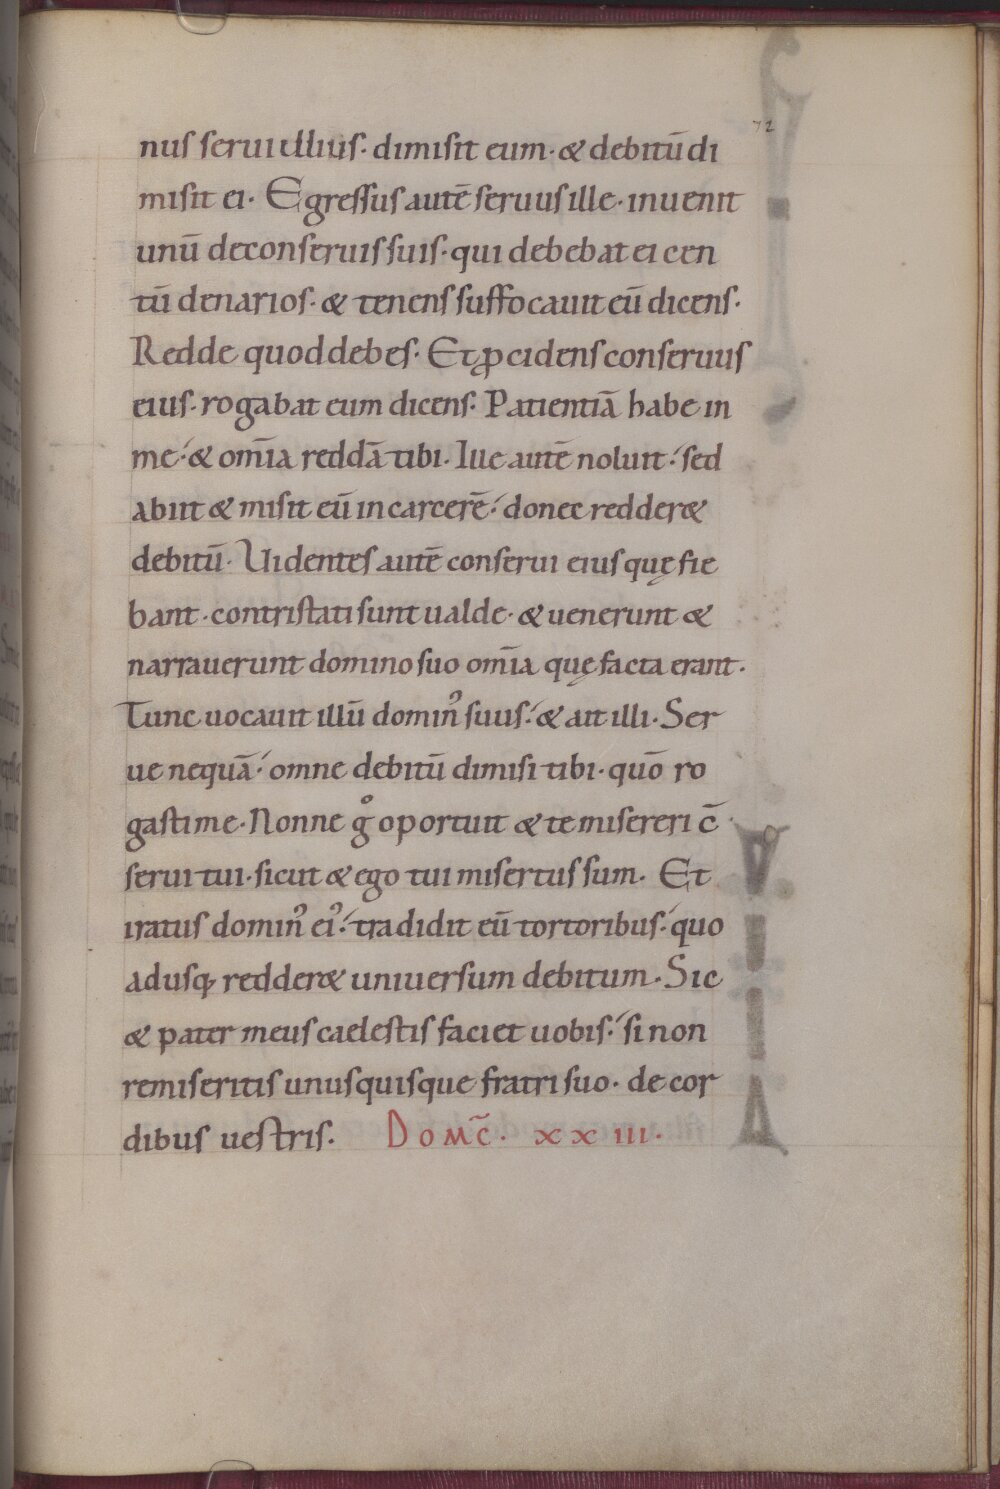 72
nus serui illius· dimisit eum· & debitū di
misit ei· Egressus autē seruus ille· inuenit
unū de conseruis suis· qui debebat ei cen
tū denarios· & tenens suffocauit eū dicens·
Redde quod debes· Et ꝓcidens conseruus
eius· rogabat eum dicens· Patientiā habe in
me·́ & om̄ia reddā tibi· Ille autē noluit·́ sed
abiit & misit eū in carcerē·́ donec redder&
debitū· Uidentes autē conserui eius quę fie
bant· contristati sunt ualde· & uenerunt &
narrauerunt domino suo om̄ia quę facta erant·
Tunc uocauit illū domin᾿ suus·́ & ait illi· Ser
ue nequā·́ omne debitū dimisi tibi· quō ro
gasti me· Nonne g̊ oportuit & te misereri c̄
serui tui· sicut & ego tui misertus sum· Et
iratus domin᾿ ei᾿·́ tradidit eū tortoribus·́ quo
adusq; redder& uniuersum debitum· Sic
& pater meus caelestis faciet uobis·́ si non
remiseritis unusquisque fratri suo· de cor
dibus uestris· Domc̄· xxiii·